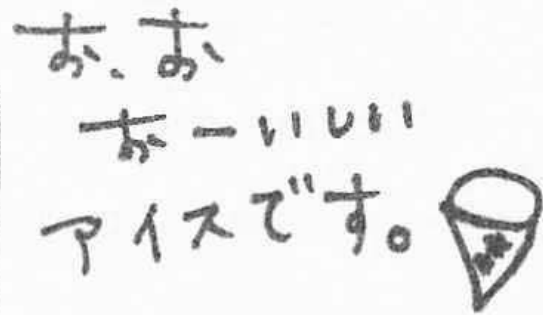 お、お
おーいしい
アイスです。